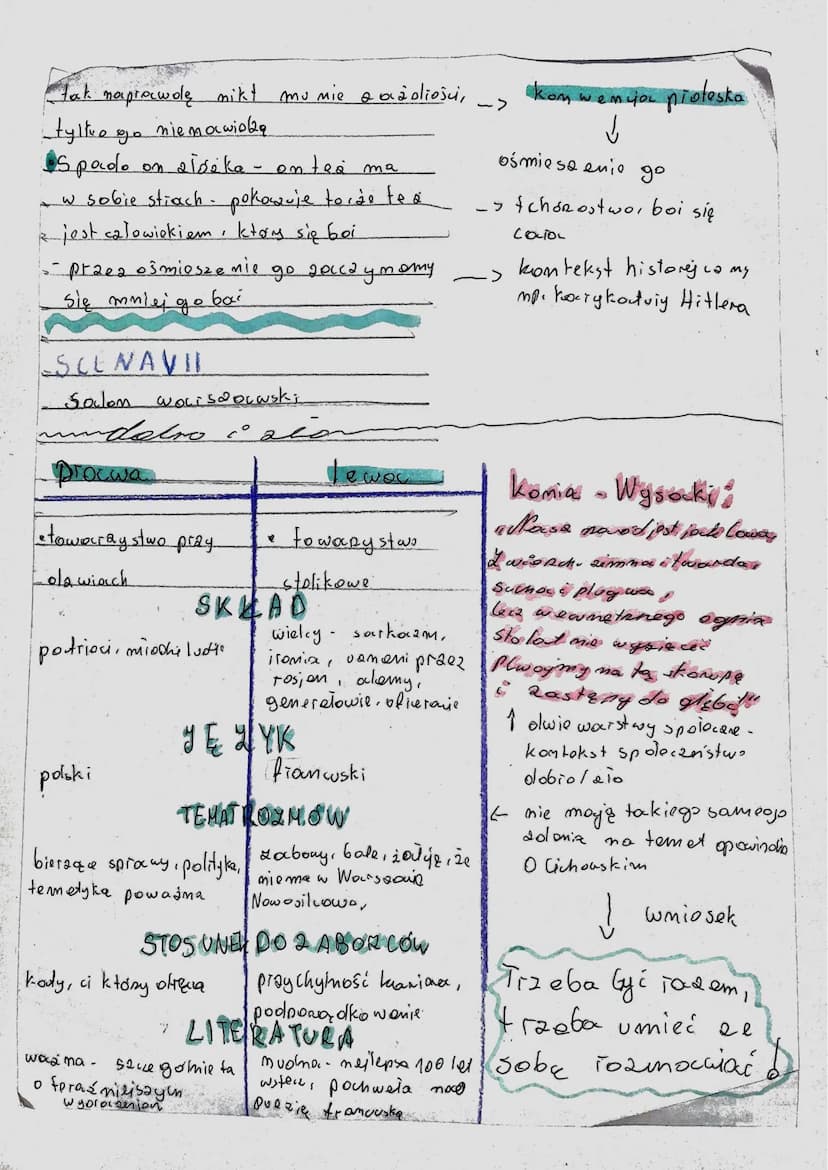 tak naprawdę nikt mu nie zazdrości, -> konwencja pioteska
tylko go nienawidzą
• Spada on z łóżka - on też ma
w sobie strach - pokazuje to że też
jest człowiekiem, który się boi
- przez ośmieszenie go zaczynamy
się mniej go bać
↓
ośmieszenie go
-> tchórzostwo, boi się
cara
-> kontekst historyczny
np. karykatury Hitlera
SCENA VII
Salon warszawski
dobro i zło
prawa
lewa
• towarzystwo przy
drzwiach
• towarzystwo
stolikowe
SKŁAD
patrioci, młodzi ludzie
wielcy - sarkazm,
ironia, uznani przez
rosjan, damy,
generałowie, oficerowie
JĘZYK
polski
francuski
TEMAT ROZMÓW
bierzące sprawy, polityka,
tematyka poważna
zabawy, bale, żałują, że
nie ma w Warszawie
Nowosilcowa,
STOSUNEK DO ZABORCÓW
kaci, ci którzy dręczą
przychylność
podporządkowanie
LITERATURA
ważna - szczególnie ta
o teraźniejszych
wydarzeniach
nudna - najlepsza 100 lat
wstecz, pochwała nad
poezję francuską
Konia - Wysocki:
"Nasz naród jest jak lawa,
Z wierzchu zimna i twarda,
sucha i plugawa,
lecz wewnętrznego ognia
sto lat nie wyziębi
plwajmy na tą skorupę
i zastępy do głębi"
↑ dwie warstwy społeczne -
kontekst społeczeństwa
dobro/zło
← nie mają takiego samego
zdania na temat opowiadania
O Cichowskim
↓ wniosek
Trzeba być razem,
trzeba umieć ze
sobą rozmawiać!